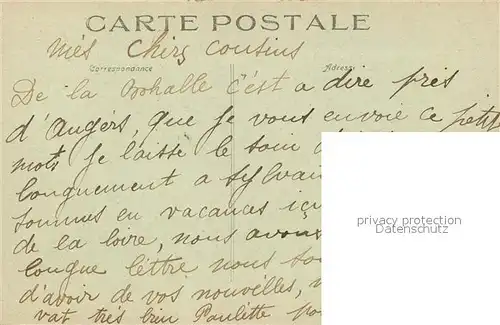 CARTE POSTALE
més chers cousins
Correspondance Adresse
De la Bohalle c'ést a dire prés
d'Angérs, que je vous envoie ce petit
mots je laisse le soin
longuement a Sylvain
sommes en vacances içi
de la loire, nous avons
longue léttre nous
d'avoir de vos nouvélles,
vat trés bien Paulette
privacy protection
Datenschutz